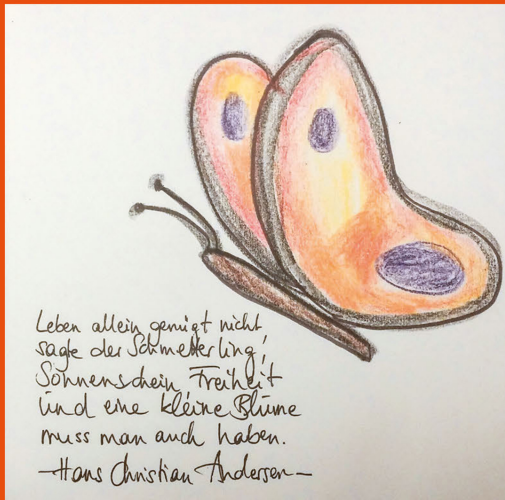 Leben allein genügt nicht
sagte der Schmetterling!
Sonnenschein, Freiheit
und eine kleine Blume
muss man auch haben.
-Hans Christian Andersen-